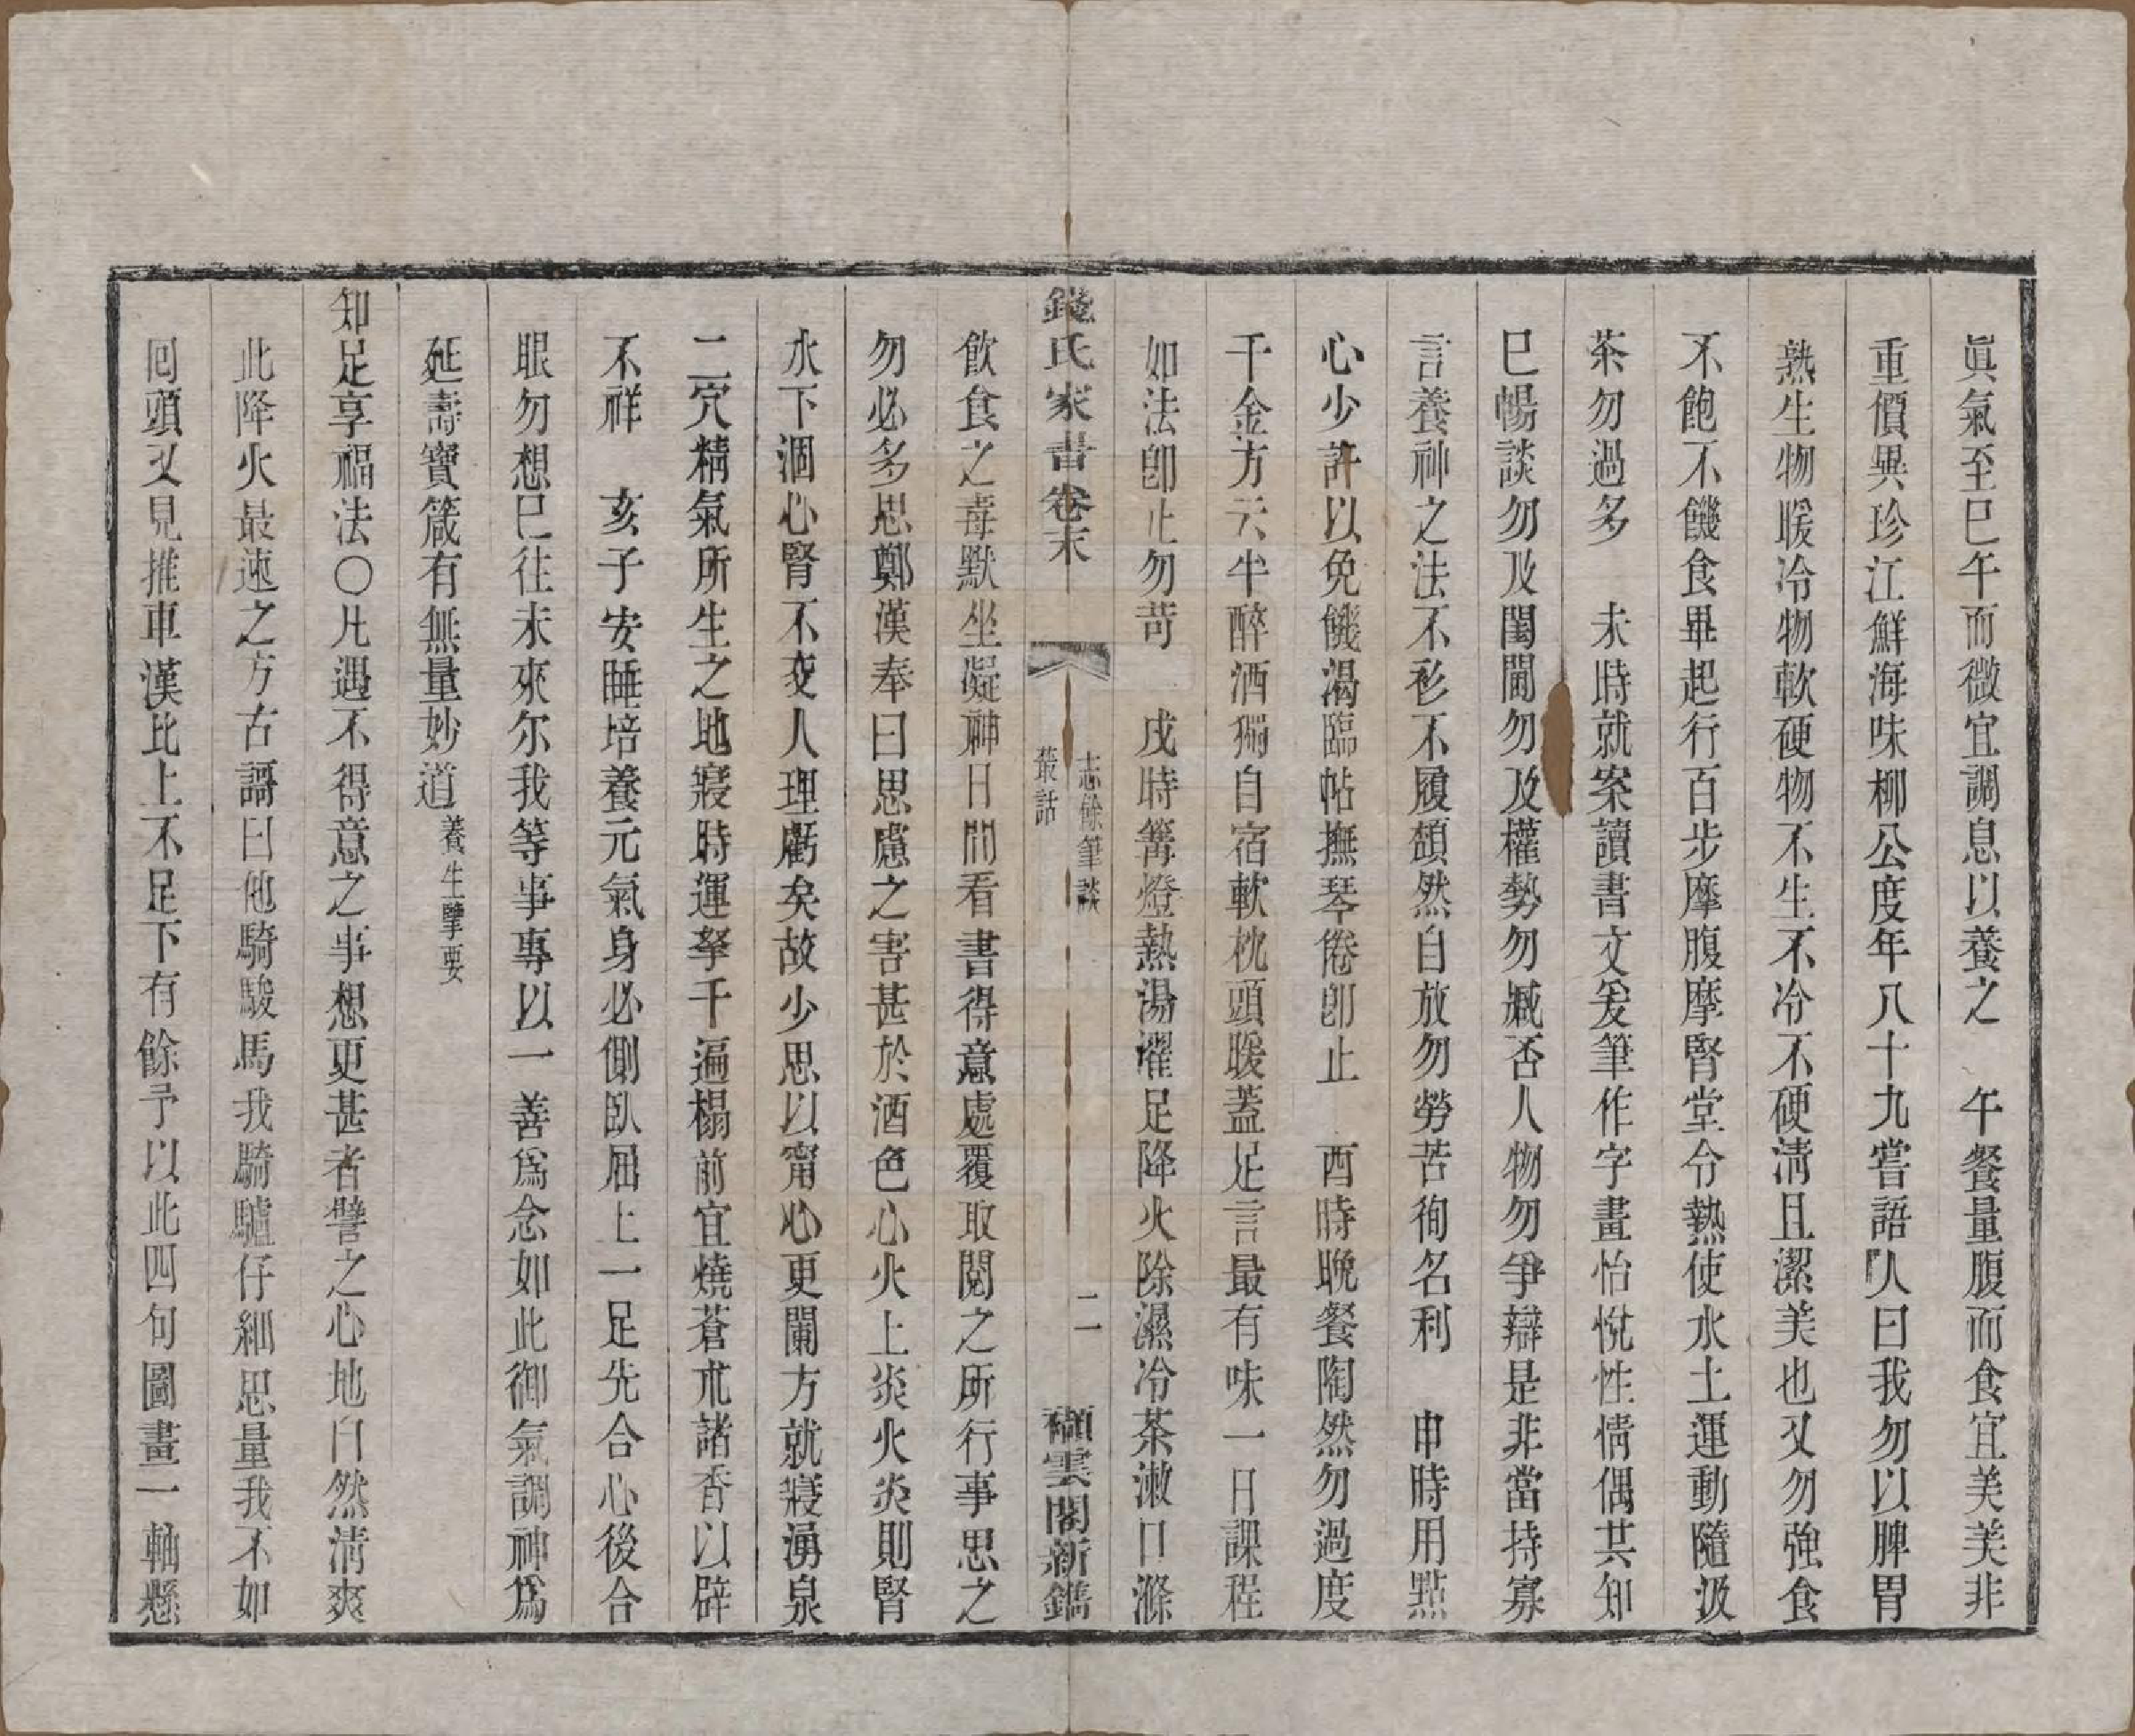 眞氣至巳午而微宜調息以養之　午餐量腹而食宜美美非
重價異珍江鮮海味柳公度年八十九嘗語人曰我勿以脾胃
熟生物暖冷物軟硬物不生不冷不硬淸且潔美也又勿強食
不飽不饑食畢起行百步摩腹摩腎堂令熱使水土運動隨汲
茶勿過多　未時就案讀書文爰筆作字畫怡悅性情偶共知
巳暢談勿及閨閫勿及權勢勿臧否人物勿爭辯是非當持寡
言養神之法不衫不履頹然自放勿勞苦徇名利　申時用點
心少許以免饑渴臨帖撫琴倦卽止　酉時晚餐陶然勿過度
千金方云半醉酒獨自宿軟枕頭暖蓋足言最有味一日課程
如法卽止勿苛　戌時篝燈熱湯濯足降火除濕冷茶漱口滌
錢氏家書卷末　志餘筆談　叢話　二　緗雲閣新鐫
飮食之毒默坐凝神日間看書得意處覆取閱之所行事思之
勿必多思鄭漢奉曰思慮之害甚於酒色心火上炎火炎則腎
水下涸心腎不交人理虧矣故少思以甯心更闌方就寢湧泉
二穴精氣所生之地寢時運拏千遍榻前宜燒蒼朮諸香以辟
不祥　亥子安睡培養元氣身必側臥屈上一足先合心後合
眼勿想已往未來尔我等事專以一善爲念如此御氣調神爲
延壽寶箴有無量妙道養生擥要
知足享福法〇凡遇不得意之事想更甚者譬之心地自然淸爽
此降火最速之方古謌曰他騎駿馬我騎驢仔細思量我不如
囘頭又見推車漢比上不足下有餘予以此四句圖畫一軸懸